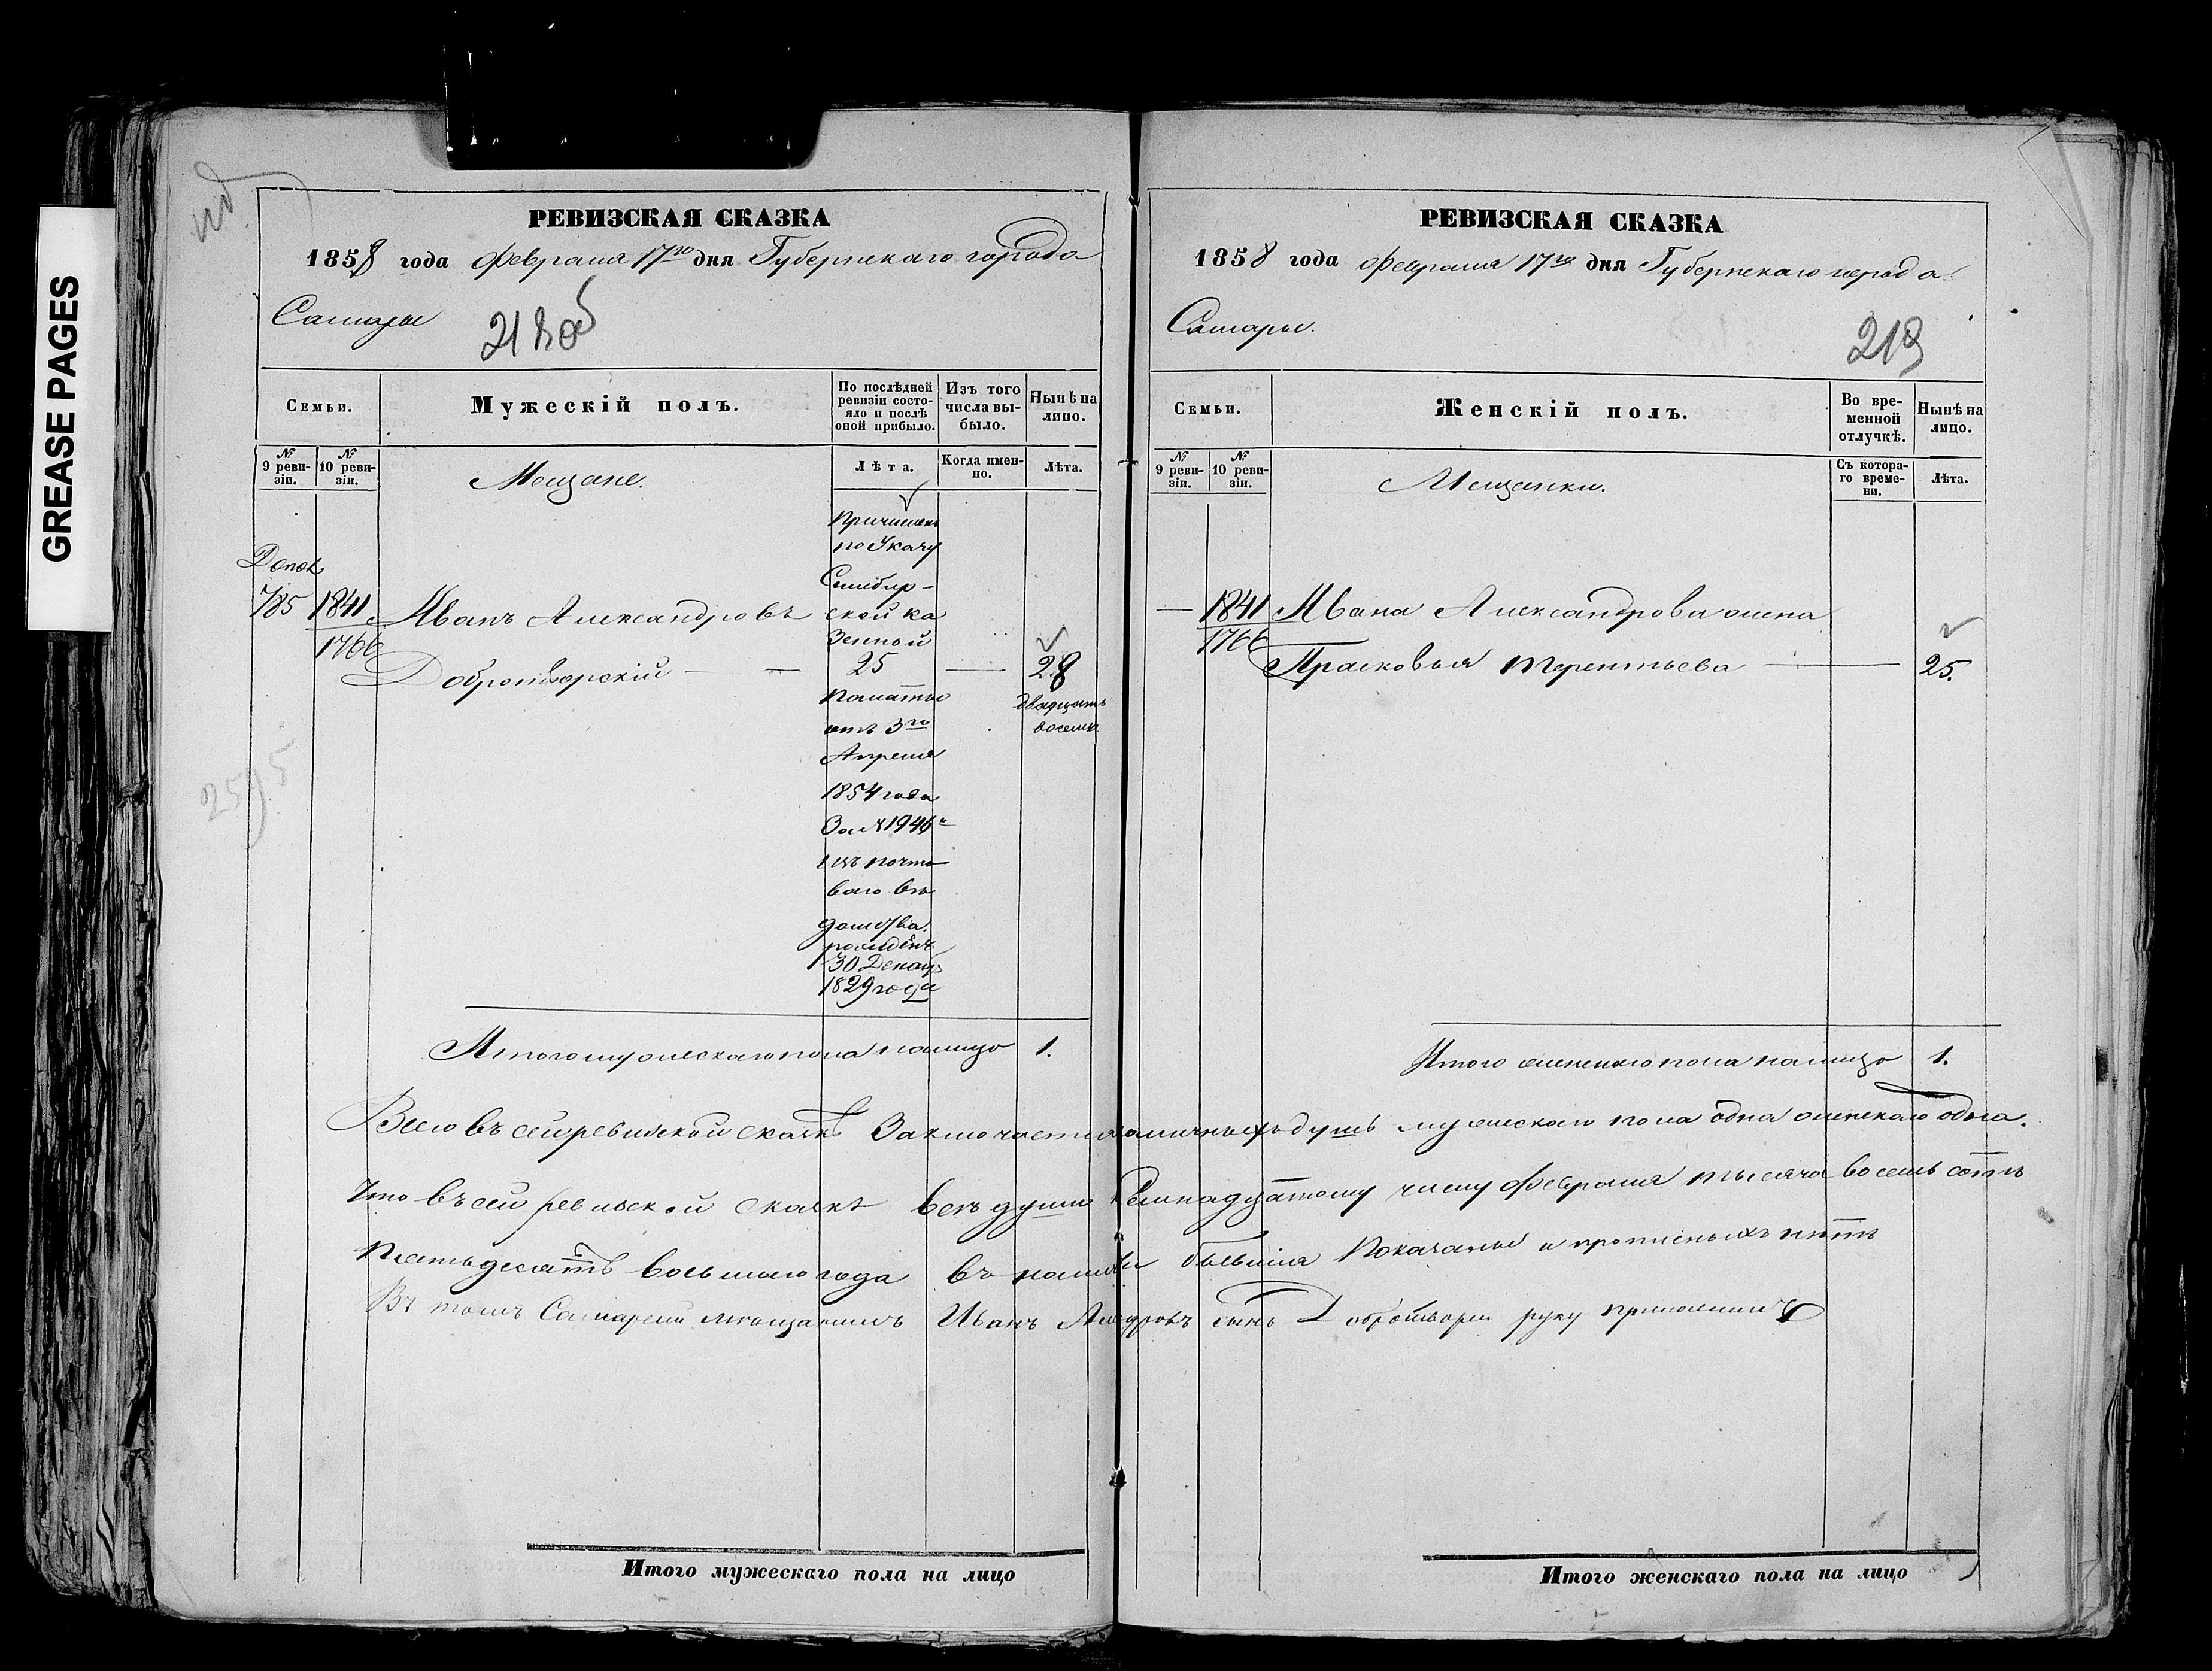 GREASE PAGES
РЕВИЗСКАЯ СКАЗКА
1858 года Февраля 17го дня Губернскаго города
Самары
218 об
Семьи.
Мужескій полъ.
По послѣдней ревизіи состояло и послѣ оной прибыло.
Изъ того числа выбыло.
Нынѣ на лицо.
№ 9 ревизіи.
№ 10 ревизіи.
Мещане.
Лѣта.
Когда именно.
Лѣта.
Допол
785
1841
1766
Иванъ Александровъ
Добротворскій
Причисленъ
по Указу
Симбир-
ской ка
зенной
25
Палаты
отъ 3го
Апреля
1854 года
За № 1946
изъ почто
ваго вѣ
домства.
рожденъ
30 Декаб
1829 года
28
двадцать
восемь
2595
Итого мужескаго пола налицо 1.
РЕВИЗСКАЯ СКАЗКА
1858 года Февраля 17го дня Губернскаго города
Самары.
219
Семьи.
Женскій полъ.
Во временной отлучкѣ.
Нынѣ на лицо.
№ 9 ревизіи.
№ 10 ревизіи.
Мещанки.
Съ котораго времени.
Лѣта.
1841
1766
Ивана Александрова жена
Прасковья Терентьева
25.
Итого женскаго пола налицо 1.
Всего въ сей ревизской сказкѣ Заключается наличныхъ душъ мужескаго пола одна женскаго одна.
Что въ сей ревизской сказкѣ всѣ души къ Семнадцатому числу Февраля тысяча восемь сотъ
Пятьдесятъ восьмаго года въ наличіи бывшія Показаны и прописныхъ нѣтъ
Въ томъ Самарскій мѣщанинъ Иванъ Алексадровъ сынъ Добротворск руку приложилъ
Итого мужескаго пола на лицо
Итого женскаго пола на лицо